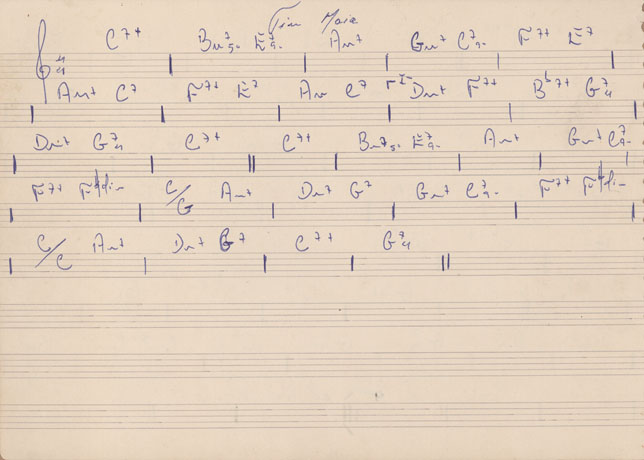 Tim Maia
C7+ Bm75- E79- Am7 Gm7 C79- F7+ E7
Am7 C7 F7+ E7 Am C7 Dm7 F7+ Bb7+ G74
Dm7 G74 C7+ C7+ Bm75- E79- Am7 Gm7 C79-
F7+ F#dim C/G Am7 Dm7 G7 Gm7 C79- F7+ F#dim
C/C Am7 Dm7 G7 C7+ G74